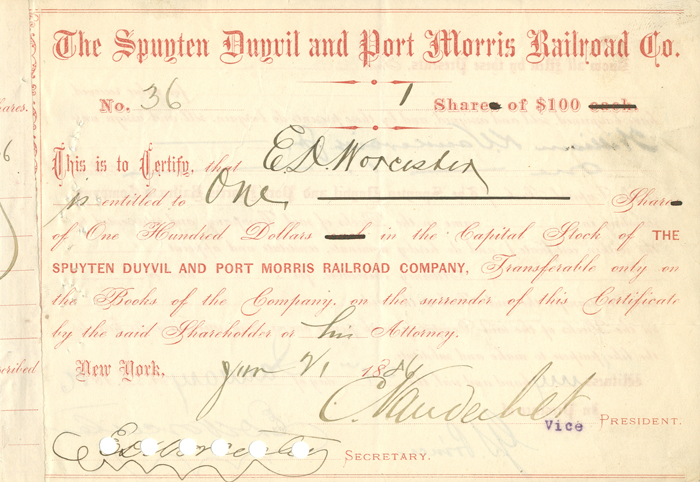 The Spuyten Duyvil and Port Morris Railroad Co.
No. 36 1 Share of $100
This is to Certify, that E. D. Worcester
is entitled to One Share
of One Hundred Dollars in the Capital Stock of THE
SPUYTEN DUYVIL AND PORT MORRIS RAILROAD COMPANY, Transferable only on
the Books of the Company, on the surrender of this Certificate
by the said Shareholder or his Attorney.
New York, 188
C. Vanderbilt
Vice PRESIDENT.
E. D. Worcester SECRETARY.
hares.
6
scribed